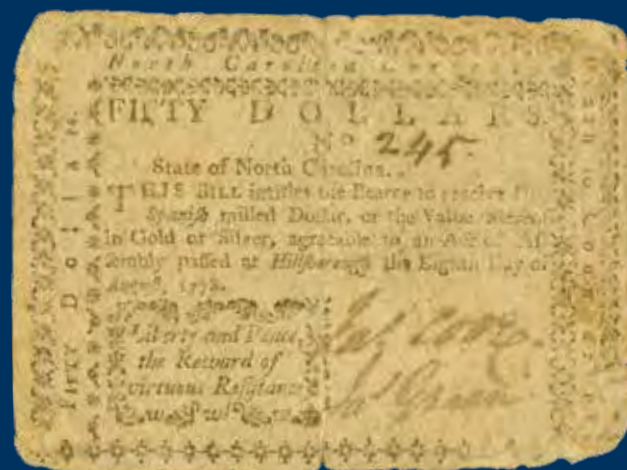 North Carolina
FIFTY DOLLARS.
No 245.
State of North Carolina.
THIS BILL intitles the Bearer to receive
Spanish milled Dollar, or the Value thereof
in Gold or Silver, agreeable to an Act of As-
sembly passed at Hillsborough the Eighth Day of
August, 1778.
Liberty and Peace,
the Reward of
virtuous Resistance
FIFTY Dollars